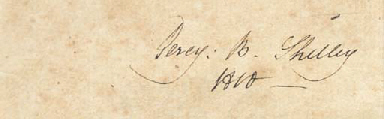 Percy: B. Shelley
1810